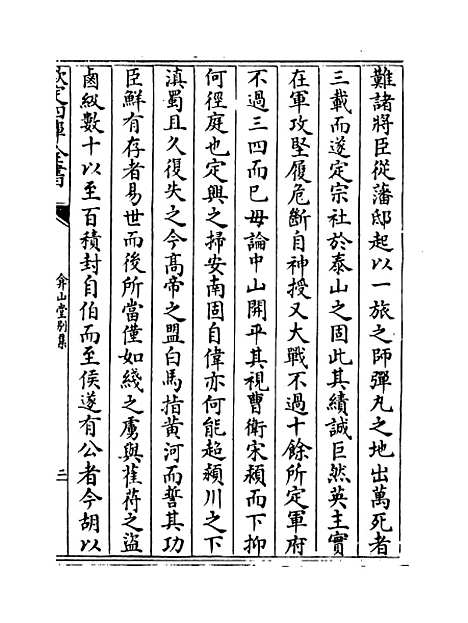 難諸將臣從藩邸起以一旅之師彈丸之地出萬死者
三載而遂定宗社於泰山之固此其績誠巨然英主實
在軍攻堅履危斷自神授又大戰不過十餘所定軍府
不過三四而已毋論中山開平其視曹衛宋頴而下抑
何徑庭也定興之掃安南固自偉亦何能超頴川之下
滇蜀且久復失之今髙帝之盟白馬指黄河而誓其功
臣鮮有存者易世而後所當僅如綫之虜與萑苻之盜
鹵級數十以至百積封自伯而至侯遂有公者今胡以
欽定四庫全書
弇山堂别集
二